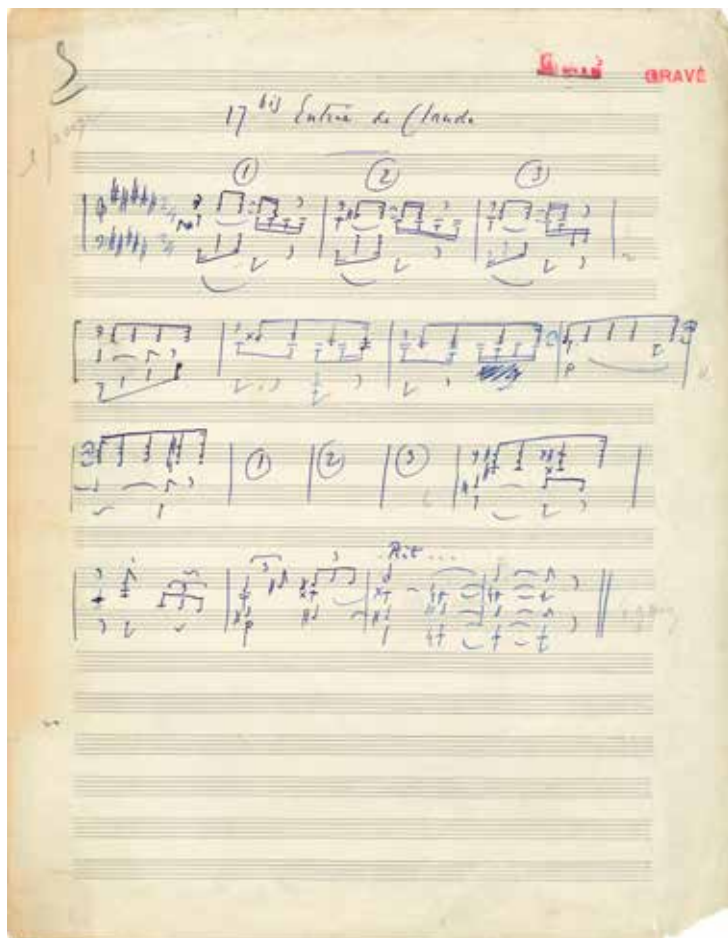 GRAVÉ
17 bis Entrée de Claude
1 2 3
1 2 3
Rit...